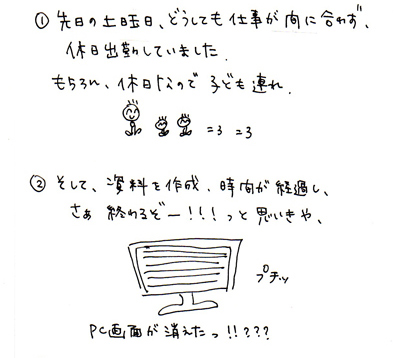 ① 先日の土曜日、どうしても仕事が間に合わず、
休日出勤していました。
もちろん、休日なので子ども連れ.
=3 =3
② そして、資料を作成、時間が経過し、
さぁ 終わるぞー!!!っと思いきや、
プチッ
PC画面が消えたっ!!???